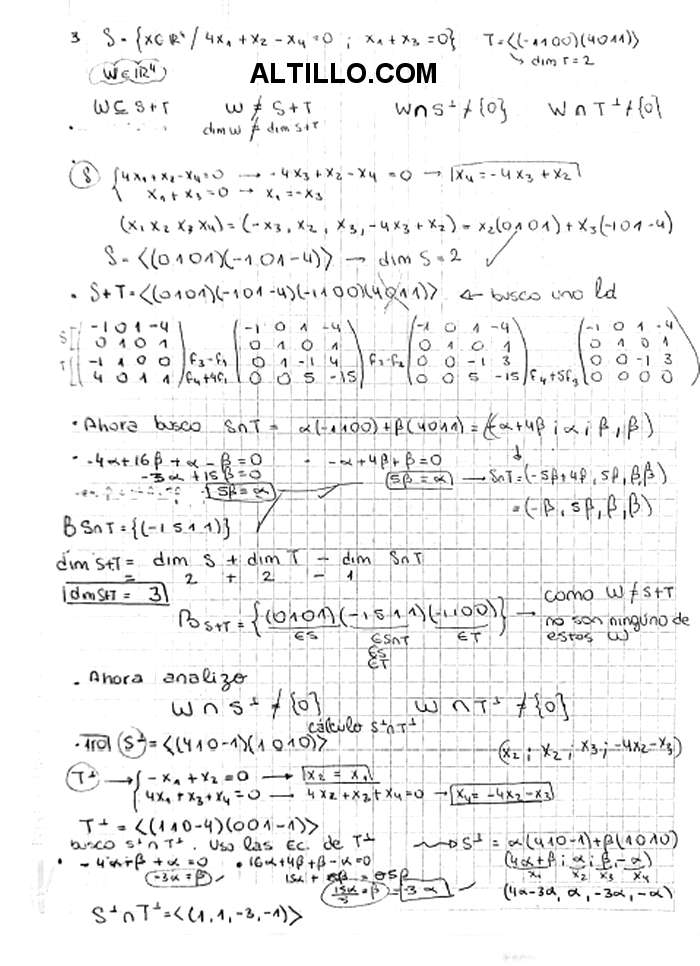 3 S = {x∈ℝ⁴ / 4x₁ + x₂ - x₄ = 0 ; x₁ + x₃ = 0} T = <(-1100)(4011)>
→ dim T = 2
W ∈ ℝ⁴ ALTILLO.COM
W ⊆ S+T W ≠ S+T W∩S⊥ ≠ {0} W∩T⊥ ≠ {0}
dim W ≠ dim S+T
S { 4x₁+x₂-x₄=0 → -4x₃+x₂-x₄=0 → x₄=-4x₃+x₂
x₁+x₃=0 → x₁=-x₃
(x₁ x₂ x₃ x₄) = (-x₃, x₂, x₃, -4x₃+x₂) = x₂(0101) + x₃(-101-4)
S = <(0101)(-101-4)> → dim S = 2 ✓
• S+T = <(0101)(-101-4)(-1100)(4011)> ← busco uno ld
S -1 0 1 -4 | -1 0 1 -4 | -1 0 1 -4 | -1 0 1 -4
0 1 0 1 | 0 1 0 1 | 0 1 0 1 | 0 1 0 1
T -1 1 0 0 f₃-f₁ | 0 1 -1 4 f₃-f₂ | 0 0 -1 3 | 0 0 -1 3
4 0 1 1 f₄+4f₁ | 0 0 5 -15 | 0 0 5 -15 f₄+5f₃ | 0 0 0 0
• Ahora busco S∩T = α(-1100) + β(4011) = (-α+4β ; α ; β, β)
• -4α+16β+α-β=0 • -α+4β+β=0
-3α+15β=0 5β=α → S∩T = (-5β+4β, 5β, β, β)
5β=α = (-β, 5β, β, β)
B S∩T = {(-1 5 1 1)}
dim S+T = dim S + dim T - dim S∩T
= 2 + 2 - 1
dim S+T = 3
B S+T = {(0101)(-1511)(-1100)} → como W ≠ S+T
∈S ∈S∩T ∈T no son ninguno de
∈S estos W
∈T
• Ahora analizo
W∩S⊥ ≠ {0} W∩T⊥ ≠ {0}
cálculo S⊥∩T⊥
• S⊥ = <(410-1)(1010)> (x₂ ; x₂ ; x₃ ; -4x₂-x₃)
T⊥ → { -x₁+x₂=0 → x₂=x₁
4x₁+x₃+x₄=0 → 4x₂+x₃+x₄=0 → x₄=-4x₂-x₃
T⊥ = <(110-4)(001-1)>
busco S⊥∩T⊥. Uso las Ec. de T⊥ → S⊥ = α(410-1)+β(1010)
• -4α+β+α=0 • 16α+4β+β-α=0 (4α+β ; α ; β, -α)
-3α=β 15α+5β=0 x₁ x₂ x₃ x₄
=β = -3α (4α-3α, α, -3α, -α)
S⊥∩T⊥ = <(1, 1, -3, -1)>